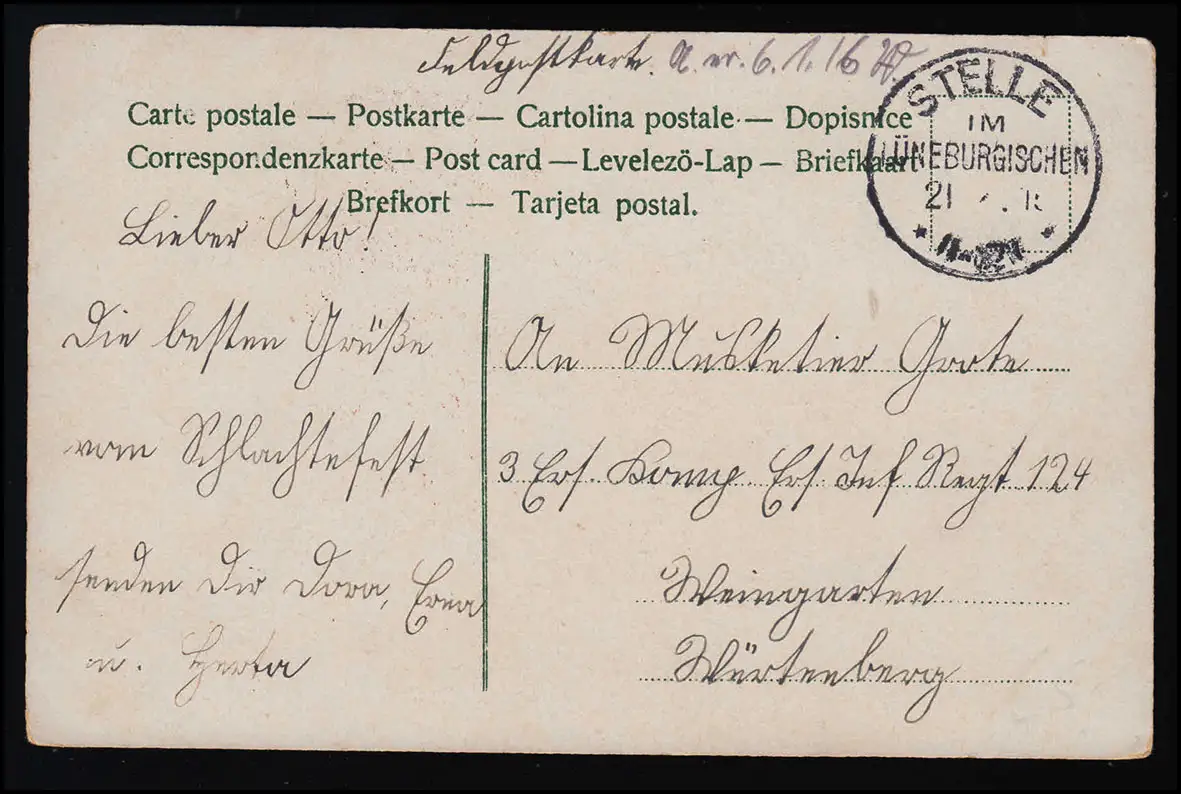 Feldpostkarte. A. er. 6. 1. 16
Carte postale — Postkarte — Cartolina postale — Dopisnice
Correspondenzkarte — Post card — Levelező-Lap — Briefkaart
Brefkort — Tarjeta postal.
STELLE
IM
LÜNEBURGISCHEN
21
Lieber Otto!
Die besten Grüße
vom Schlachtefest
senden Dir Dora, Erna
u. Herta
An Musketier Grote
3 Ers. Komp. Ers. Inf Regt 124
Weingarten
Würtenberg